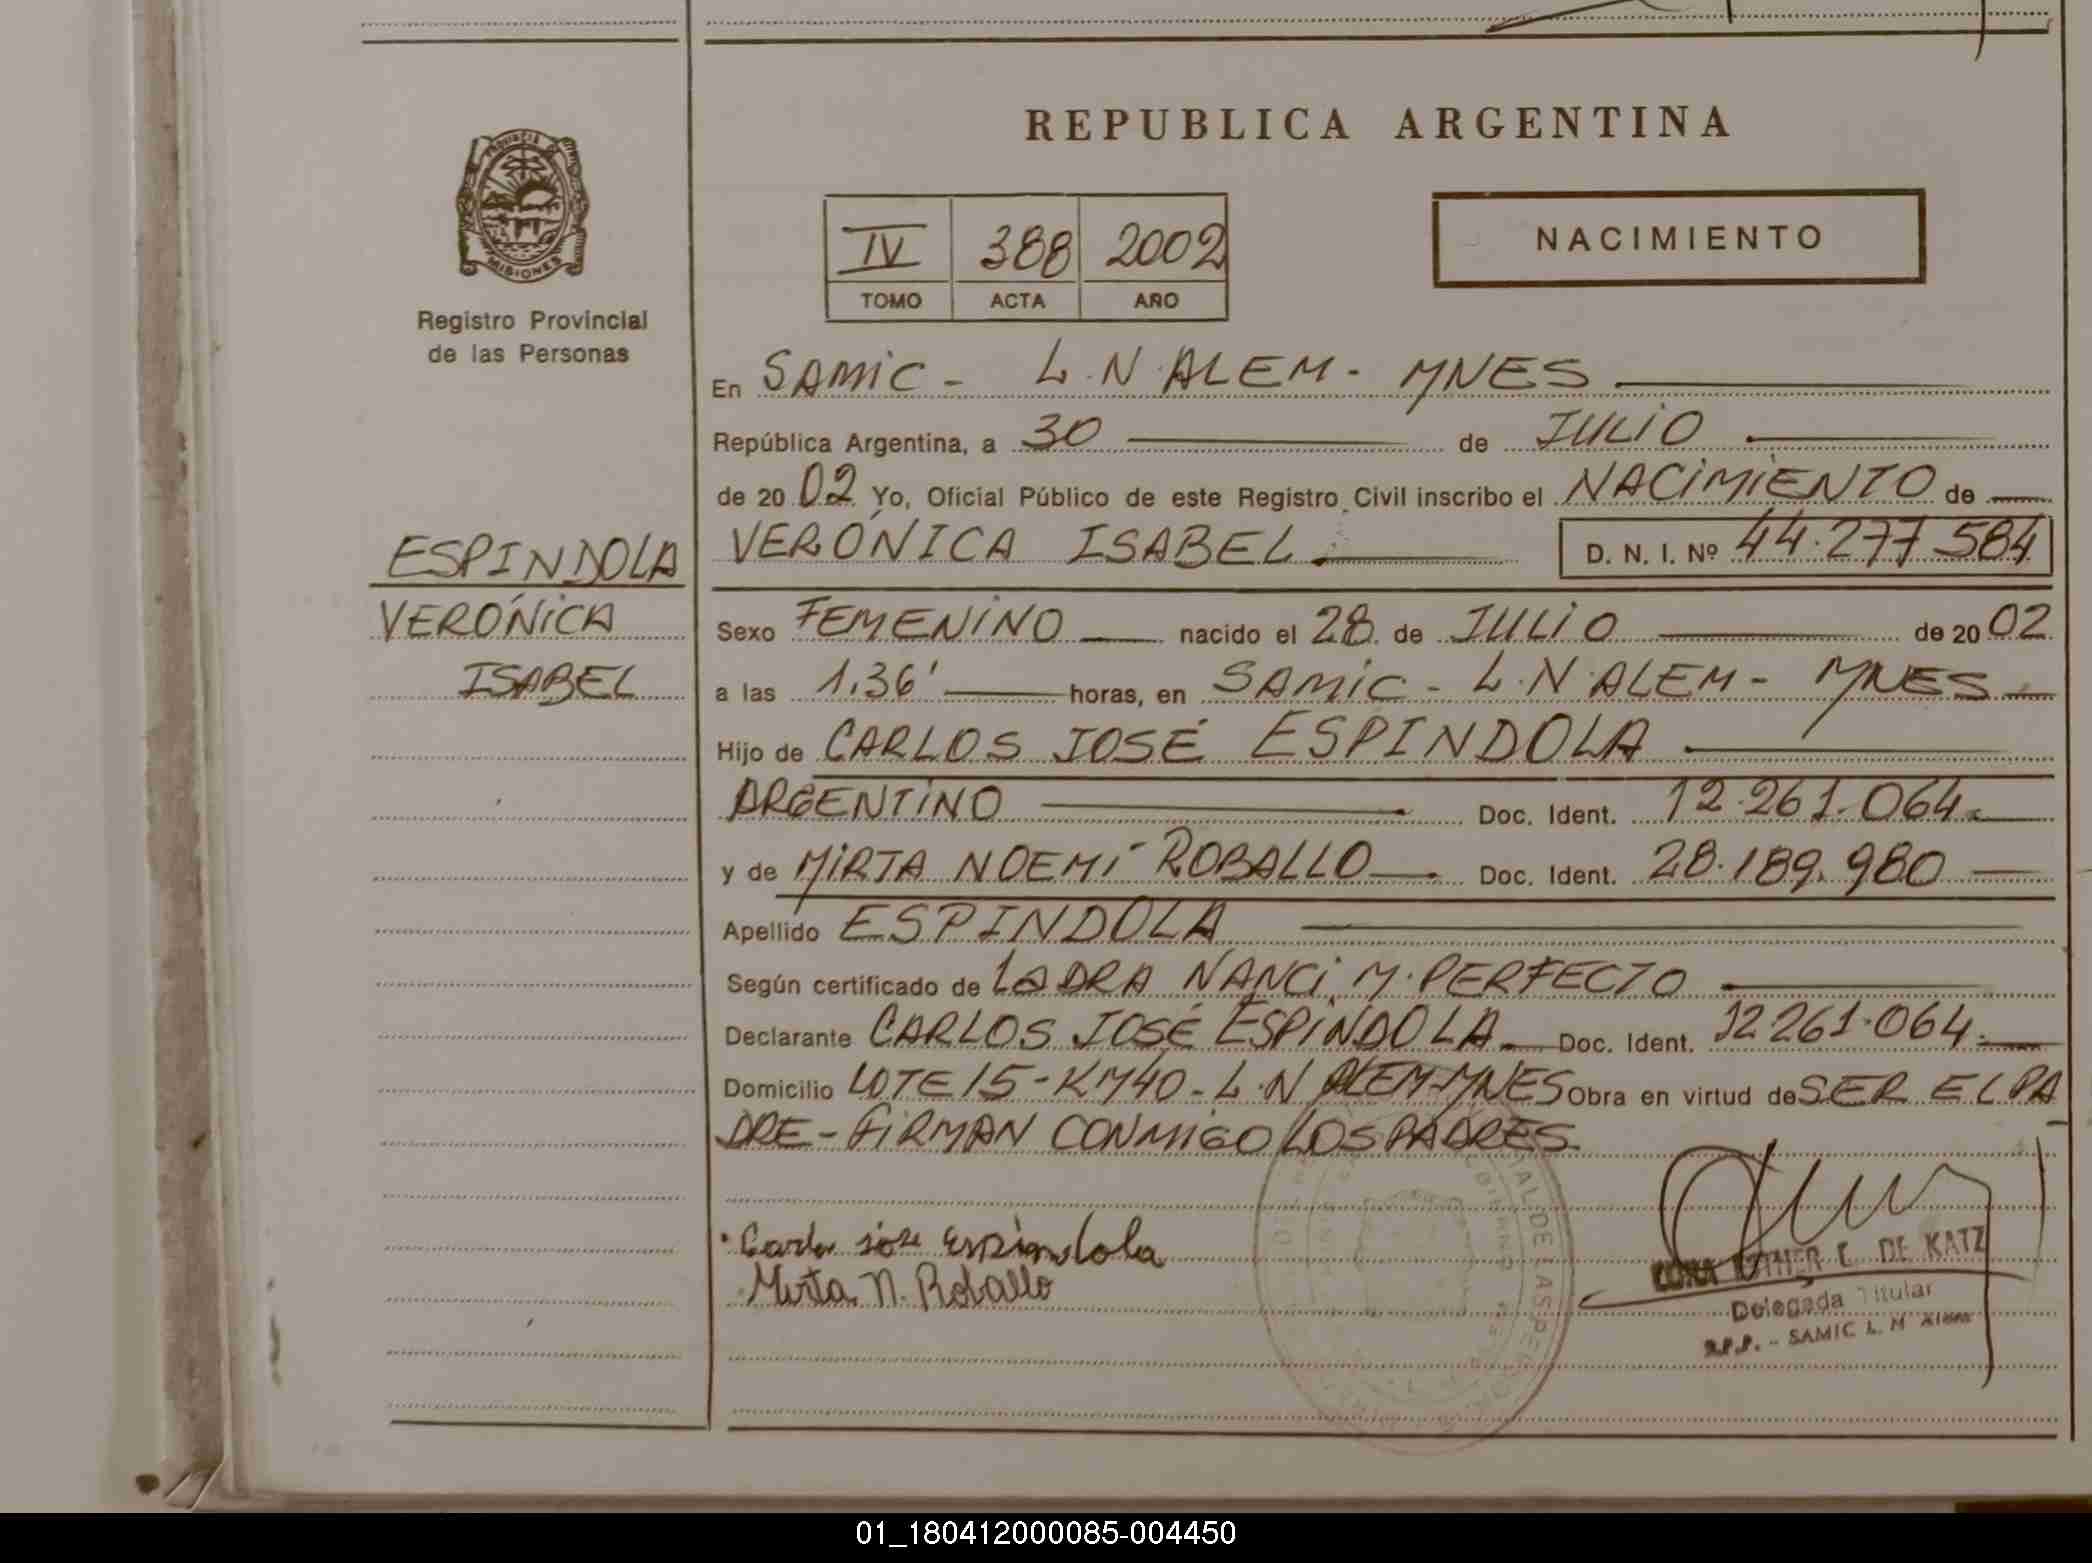 REPUBLICA ARGENTINA
PROVINCIA DE
MISIONES
Registro Provincial
de las Personas
IV 388 2002
TOMO ACTA AÑO
NACIMIENTO
En SAMIC - L.N.ALEM - MNES
República Argentina, a 30 de JULIO
de 20 02 Yo, Oficial Público de este Registro Civil inscribo el NACIMIENTO de
VERÓNICA ISABEL D. N. I. Nº 44.277.584
ESPINDOLA
VERÓNICA
ISABEL
Sexo FEMENINO nacido el 28 de JULIO de 20 02
a las 1.36' horas, en SAMIC - L.N.ALEM - MNES
Hijo de CARLOS JOSÉ ESPINDOLA
ARGENTINO Doc. Ident. 12.261.064
y de MIRTA NOEMÍ ROBALLO Doc. Ident. 28.189.980
Apellido ESPINDOLA
Según certificado de LA DRA NANCI M. PERFECTO
Declarante CARLOS JOSÉ ESPINDOLA Doc. Ident. 12.261.064
Domicilio LOTE 15 - KM40 - L.N ALEM-MNES Obra en virtud de SER EL PA
DRE - FIRMAN CONMIGO LOS PADRES.
Carlos José Espindola
Mirta N. Roballo
ESTHER DE KATZ
Delegada Titular
R.P.P. - SAMIC L. N. Alem
01_180412000085-004450